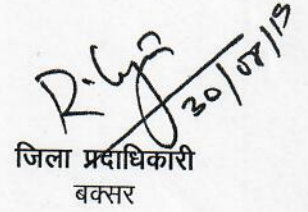 30/08/19
जिला प्रदाधिकारी
बक्सर